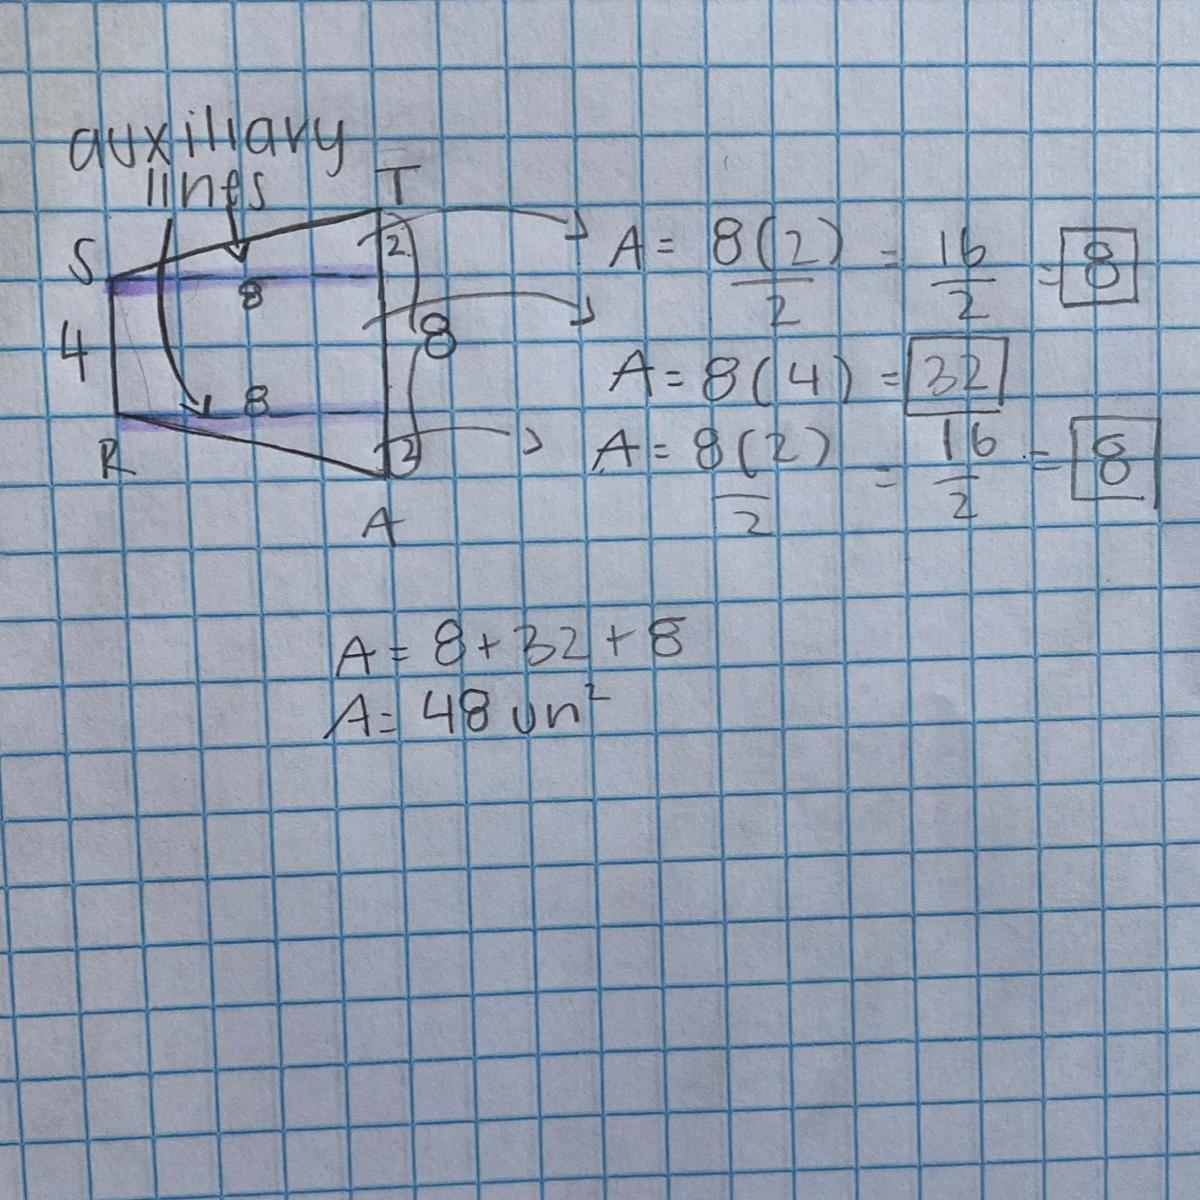 auxiliary
lines
T
S
2
8
4
8
8
R
2
A
A = 8(2)/2 = 16/2 = 8
A = 8(4) = 32
A = 8(2)/2 = 16/2 = 8
A = 8 + 32 + 8
A = 48 un²